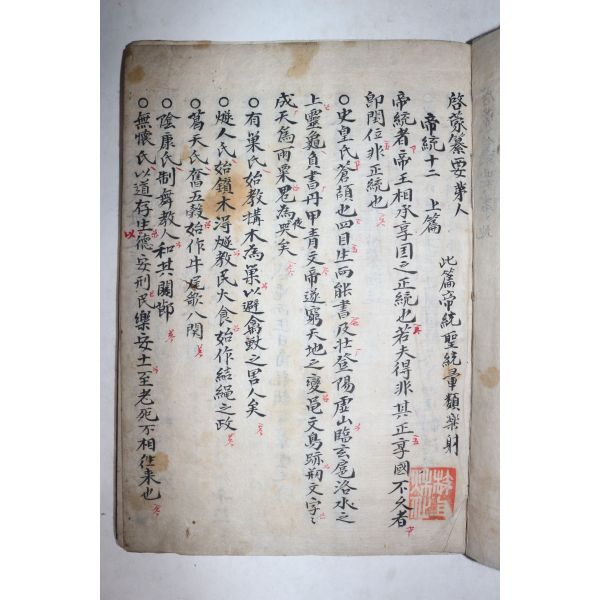 啓蒙纂要第人
帝統十二 上篇 此篇帝統聖統量類樂射
帝統者帝王相承享国之正統也若夫得非其正享國不久者
即閏位非正統也
○史皇氏蒼頡也四目生而能書及壮登陽虛山臨玄扈洛水之
上靈龜負書丹甲青文帝遂窮天地之變 文鳥跡 文字
成天爲雨粟鬼為夜哭矣
○有巢氏始教搆木為巢以避禽獸之害人矣
○燧人氏始鑽木淂燧教民火食始作結繩之政
○葛天氏奮五穀始作牛尾歌八闋
○陰康氏制舞教人和其関節
○無懷氏以道存生德安刑民樂安土至老死不相往来也
以